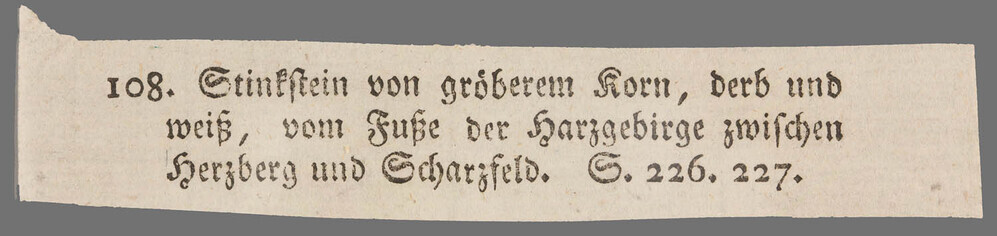 108. Stinkſtein von gröberem Korn, derb und
weiß, vom Fuße der Harzgebirge zwiſchen
Herzberg und Scharzfeld. S. 226. 227.